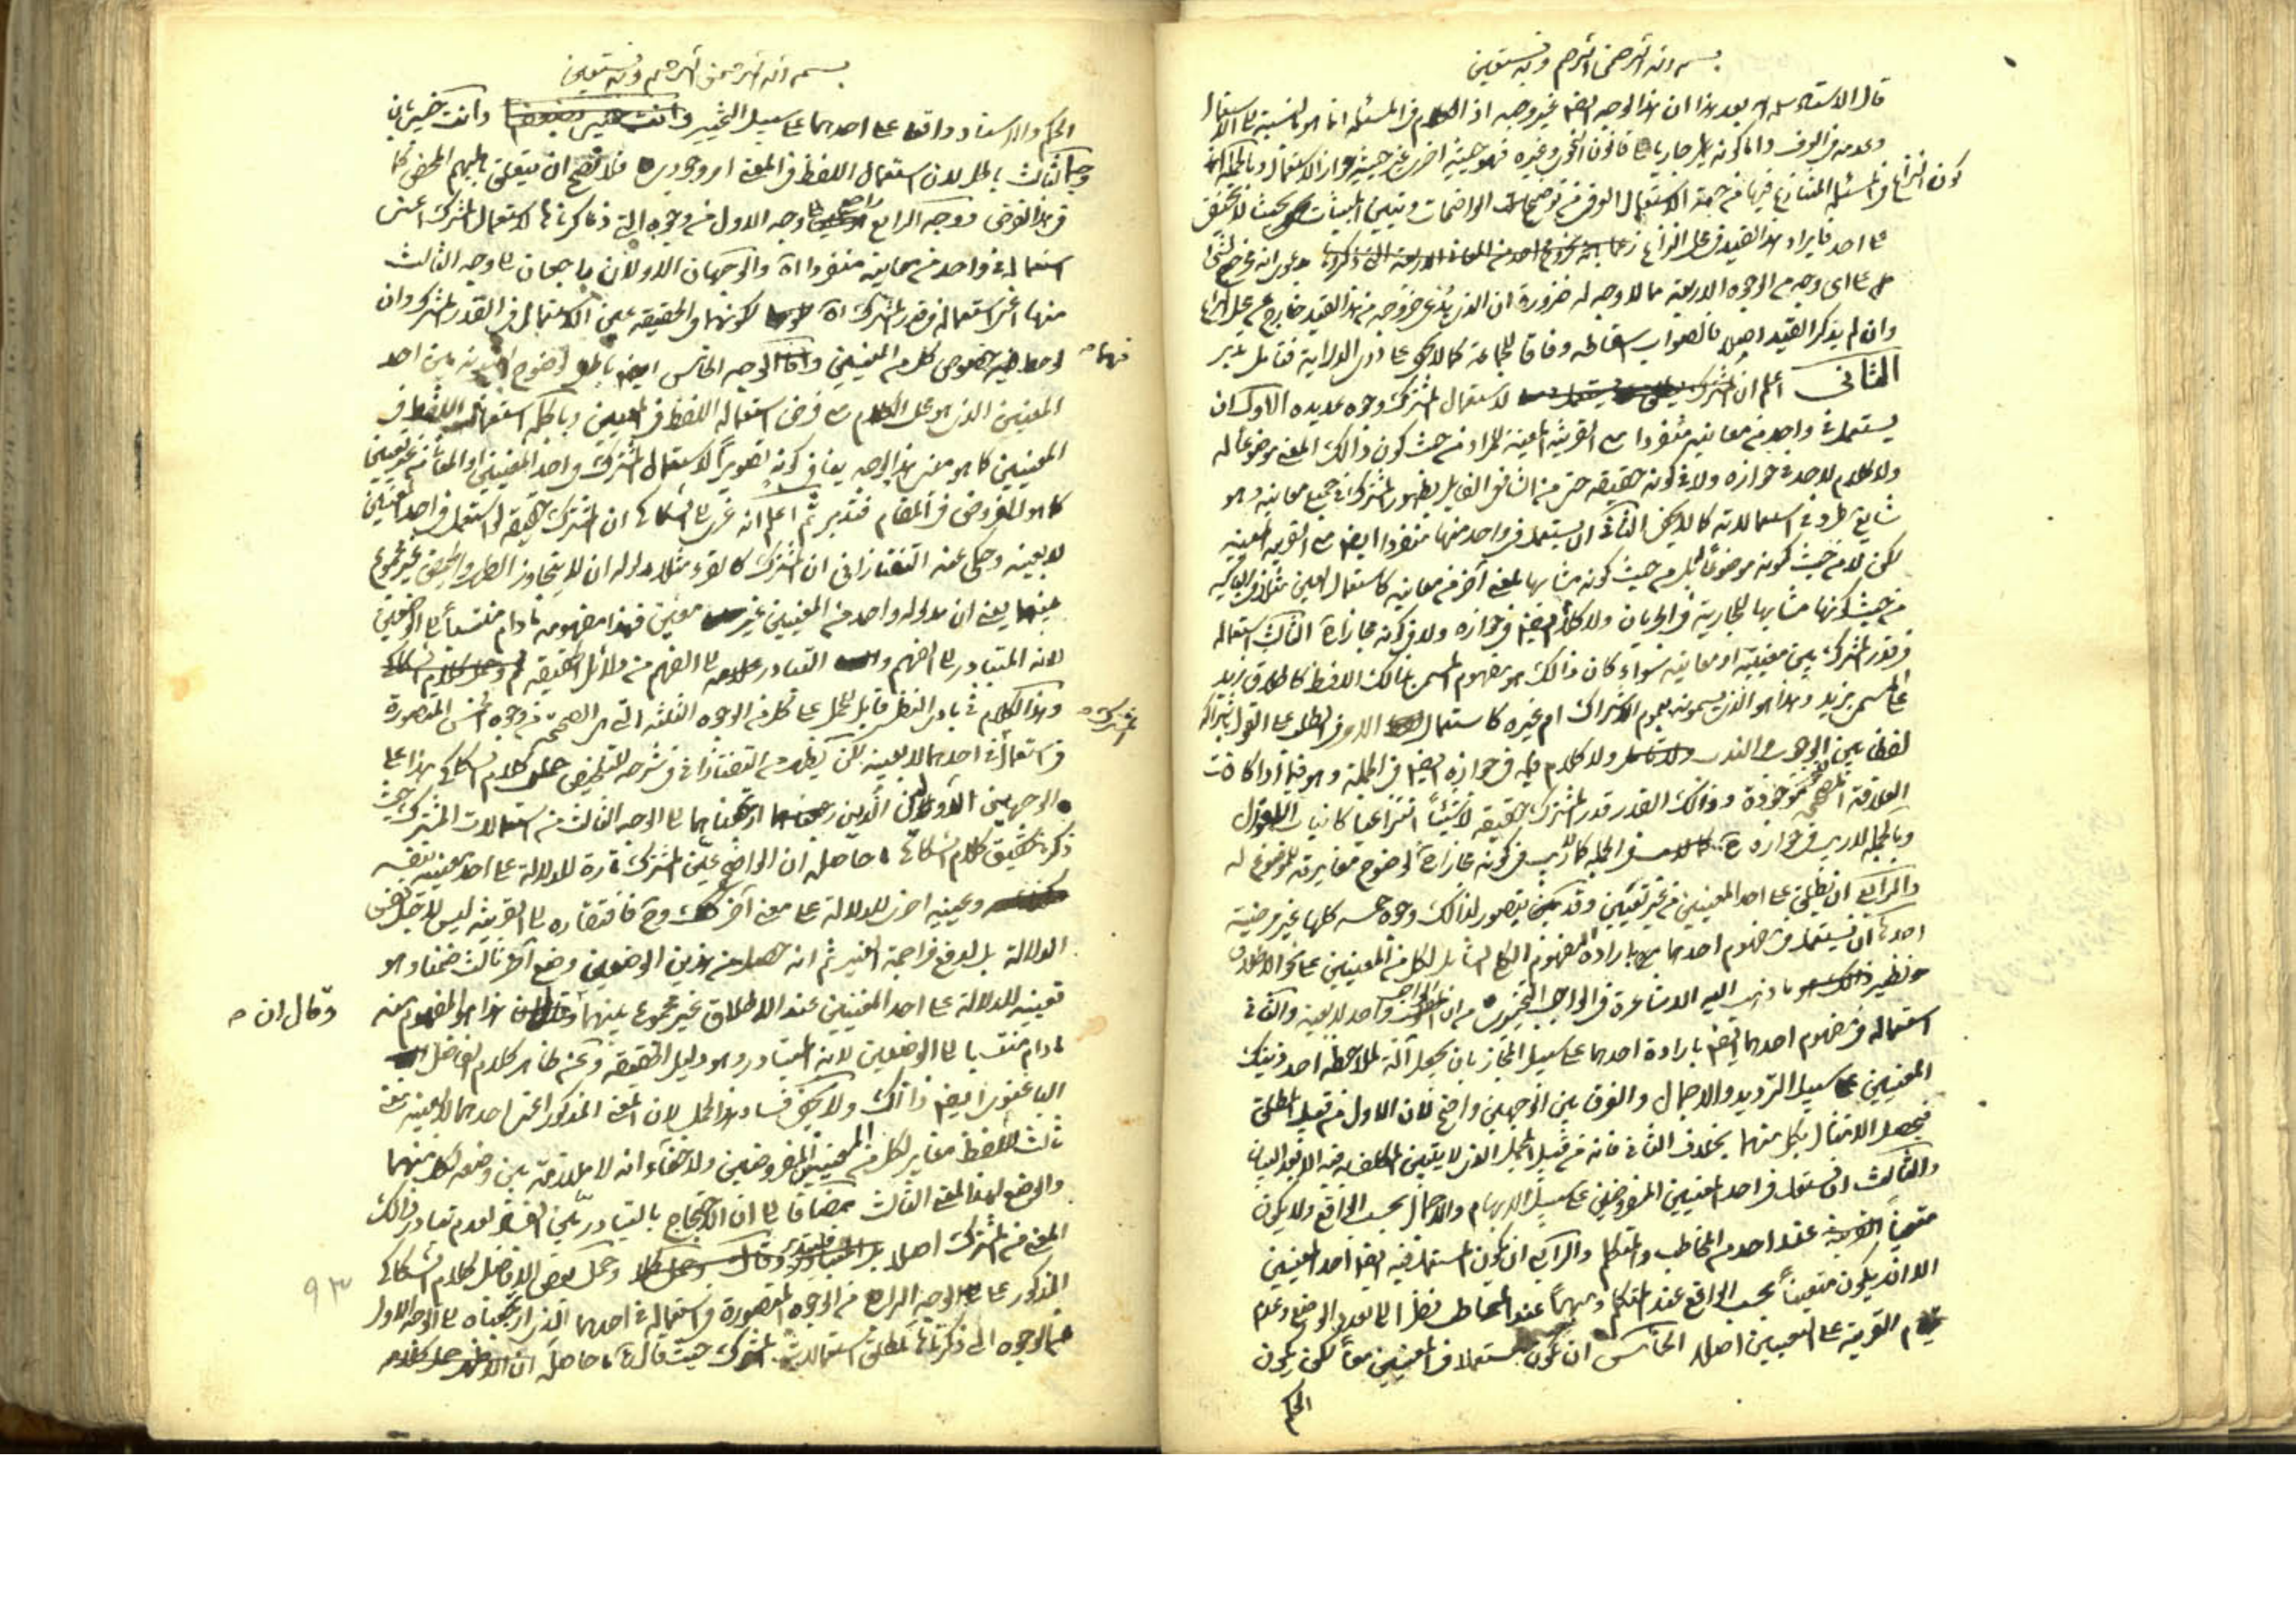 بسم الله الرحمن الرحيم وبه نستعين
قال الاستاد سلمه الله بعد هذا ان هذا الوجه ايضا غير وجيه اذ الكلام في المسئلة انما هو بالنسبة الى الاستعمال
وعدمه في العرف واما كونه جاريا على قانون النحو وغيره فهو حيثية اخرى غير حيثية جواز الاستعمال وبالجملة
كون النزاع في المسئلة المتنازع فيها من جهة الاستعمال العرفي من الواضحات
على احد فايراد هذا القيد في محل النزاع زعما
على اي وجه من الوجوه الاربعة مما لا وجه له ضرورة ان الذي يدعى خروجه من هذا القيد خارج عن محل النزاع
وان لم يذكر القيد اصلا فالصواب اسقاطه وفاقا للجماعة كما لا يخفى على ذوي الدراية فتامل تدبر
الثاني اعلم ان لاستعمال المشترك وجوه عديدة الاول ان
يستعمل في واحد من معانيه منفردا مع القرينة المعينة للمراد من حيث كون ذالك المعنى موضوعا له
ولا كلام لاحد في جوازه ولا في كونه حقيقة حتى من القايل بظهور المشترك في جميع معانيه وهو
شايع في استعمالاته كما لا يخفى الثاني ان يستعمل في واحد منها منفردا ايضا مع القرينة المعينة
لكن لا من حيث كونه موضوعا له بل من حيث كونه مشابها لمعنى آخر من معانيه كاستعمال العين مثلا في الباكية
من حيث كونها مشابها للجارية في الجريان ولا كلام ايضا في جوازه ولا في كونه مجازا الثالث استعماله
في قدر المشترك بين معنييه او معانيه سواء كان ذالك هو مفهوم المسمى بذالك اللفظ كاطلاق زيد
على المسمى بزيد وهذا هو الذي يسمونه بعموم الاشتراك ام غيره كاستعمال الامر في الطلب على القول باشتراكه
لفظا بين الوجوب والندب ولا كلام في جوازه ايضا في الجملة وهو فيما اذا كانت
العلاقة المصححة موجودة وذالك القدر قدر المشترك حقيقة لا شيئا انتزاعيا
وبالجملة لا ريب في جوازه في الجملة كما لا ريب في كونه مجازا لوضوح مغايرته للموضوع له
والرابع ان يطلق على احد المعنيين من غير تعيين وقد يتصور لذالك وجوه خمسة كلها غير مرضية
احدها ان يستعمل في مفهوم احدهما بارادة المفهوم الكلي الشامل لكل من المعنيين على نحو الاطلاق
ونظير ذالك هو ما ذهب اليه الاشاعرة في الواجب التخييري من ان الواجب واحد لا بعينه والثاني
استعماله في مفهوم احدهما ايضا بارادة احدهما على سبيل المجاز بان يجعل آلة لملاحظة احد ذينك
المعنيين على سبيل الترديد والاجمال والفرق بين الوجهين واضح لان الاول من قبيل المطلق
فيحصل الامتثال بكل منهما بخلاف الثاني فانه من قبيل المجمل الذي لا يتعين المكلف به فيه الا بعد البيان
والثالث ان يستعمل في احد المعنيين المفروضين على سبيل الابهام والاجمال بحسب الواقع ولا يكون
متعينا عند احد من المخاطب والمتكلم والرابع ان يكون المستعمل فيه ايضا احد المعنيين
الا انه يكون متعينا بحسب الواقع عند المتكلم ومبهما عند المخاطب نظرا الى تعدد الوضع وعدم
القرينة على التعيين اصلا الخامس ان يكون مستعملا في المعنيين معا لكن يكون
الحكم
بسم الله الرحمن الرحيم وبه نستعين
الحكم والاسناد واقعا على احدهما على سبيل التخيير وانت خبير بان
وجه الثالث باطل لان استعمال اللفظ في المعنى امر وجودي فلا يصح ان يتعلق بالمبهم المحض كما
في هذا الفرض ووجه الرابع راجع الى وجه الاول من وجوه التي ذكرناها لاستعمال المشترك اعنى
استعماله في واحد من معانيه منفردا والوجهان الاولان راجعان الى وجه الثالث
منها اعنى استعماله في قدر المشترك لكونهما في الحقيقة عين الاستعمال في القدر المشترك وان
لوحظ فيه خصوص كل من المعنيين واما الوجه الخامس ايضا باطل لوضوح
فيهما
المعنيين الذي هو محل الكلام مع فرض استعماله اللفظ في المعنيين وبالجملة استعمال اللفظ في
المعنيين كما هو معنى هذا الوجه ينافي كونه تصويرا لاستعمال المشترك في احد المعنيين او المعاني من غير تعيين
كما هو المفروض في المقام فتدبر ثم اعلم انه عزى الى السكاكي ان المشترك حقيقة لو استعمل في احد المعنيين
لا بعينه وحكى عنه التفتازاني ان المشترك كالقرء مثلا مدلوله ان لا يتجاوز الطهر والحيض غير مجموع
بينهما يعنى ان مدلوله واحد من المعنيين غير معين فهذا مفهومه ما دام منتسبا الى الوضعين
لانه المتبادر الى الفهم والتبادر الى الفهم من دلائل الحقيقة
المشترك
وهذا الكلام في بادي النظر قابل للحمل على كل من الوجوه الثلثة التي هي الصحيحة من وجوه الخمس المتصورة
في استعماله في احدهما لا بعينه لكن يظهر من التفتازاني في شرحه للتلخيص حمل كلام السكاكي هذا على
الوجهين الاولين الذين ارجعناهما الى الوجه الثالث من استعمالات المشترك حيث
ذكر في تحقيق كلام السكاكي ما حاصله ان الواضع عين المشترك تارة للدلالة على احد معنييه بنفسه
وعينه اخرى للدلالة على معنى آخر فافتقاره الى القرينة ليس لاجل نفس
الدلالة بل لدفع مزاحمة الغير ثم انه حصل من هذين الوضعين وضع آخر ثالث ضمنا وهو
تعيينه للدلالة على احد المعنيين عند الاطلاق غير مجموع بينهما هذا هو المفهوم منه
وقال ان
ما دام منتسبا الى الوضعين لانه المتبادر وهو دليل الحقيقة وعن ظاهر كلام الفاضل
الباغنوي ايضا ذالك ولا يخفى فساد هذا الحمل لان المعنى المذكور اعنى احدهما لا بعينه معنى
ثالث للفظ مغاير لكل من المعنيين المفروضين ولا خفاء انه لا ملازمة بين وضعه لكل منهما
والوضع لهذا المعنى الثالث مضافا الى ان الاحتجاج بالتبادر بين الفساد لعدم تبادر ذالك
المعنى من المشترك اصلا وحمل بعض الافاضل كلام السكاكي
المذكور على الوجه الرابع من الوجوه المتصورة في استعماله في احدهما الذي ارجعناه الى الوجه الاول
من الوجوه التي ذكرناها لمطلق استعمالات المشترك حيث قال ما حاصله ان
٩٣